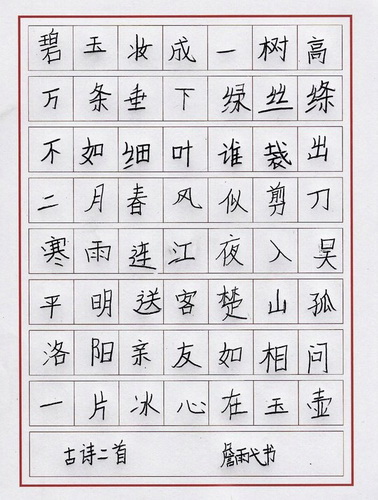 碧玉妆成一树高
万条垂下绿丝绦
不如细叶谁裁出
二月春风似剪刀
寒雨连江夜入吴
平明送客楚山孤
洛阳亲友如相问
一片冰心在玉壶
古诗二首 书